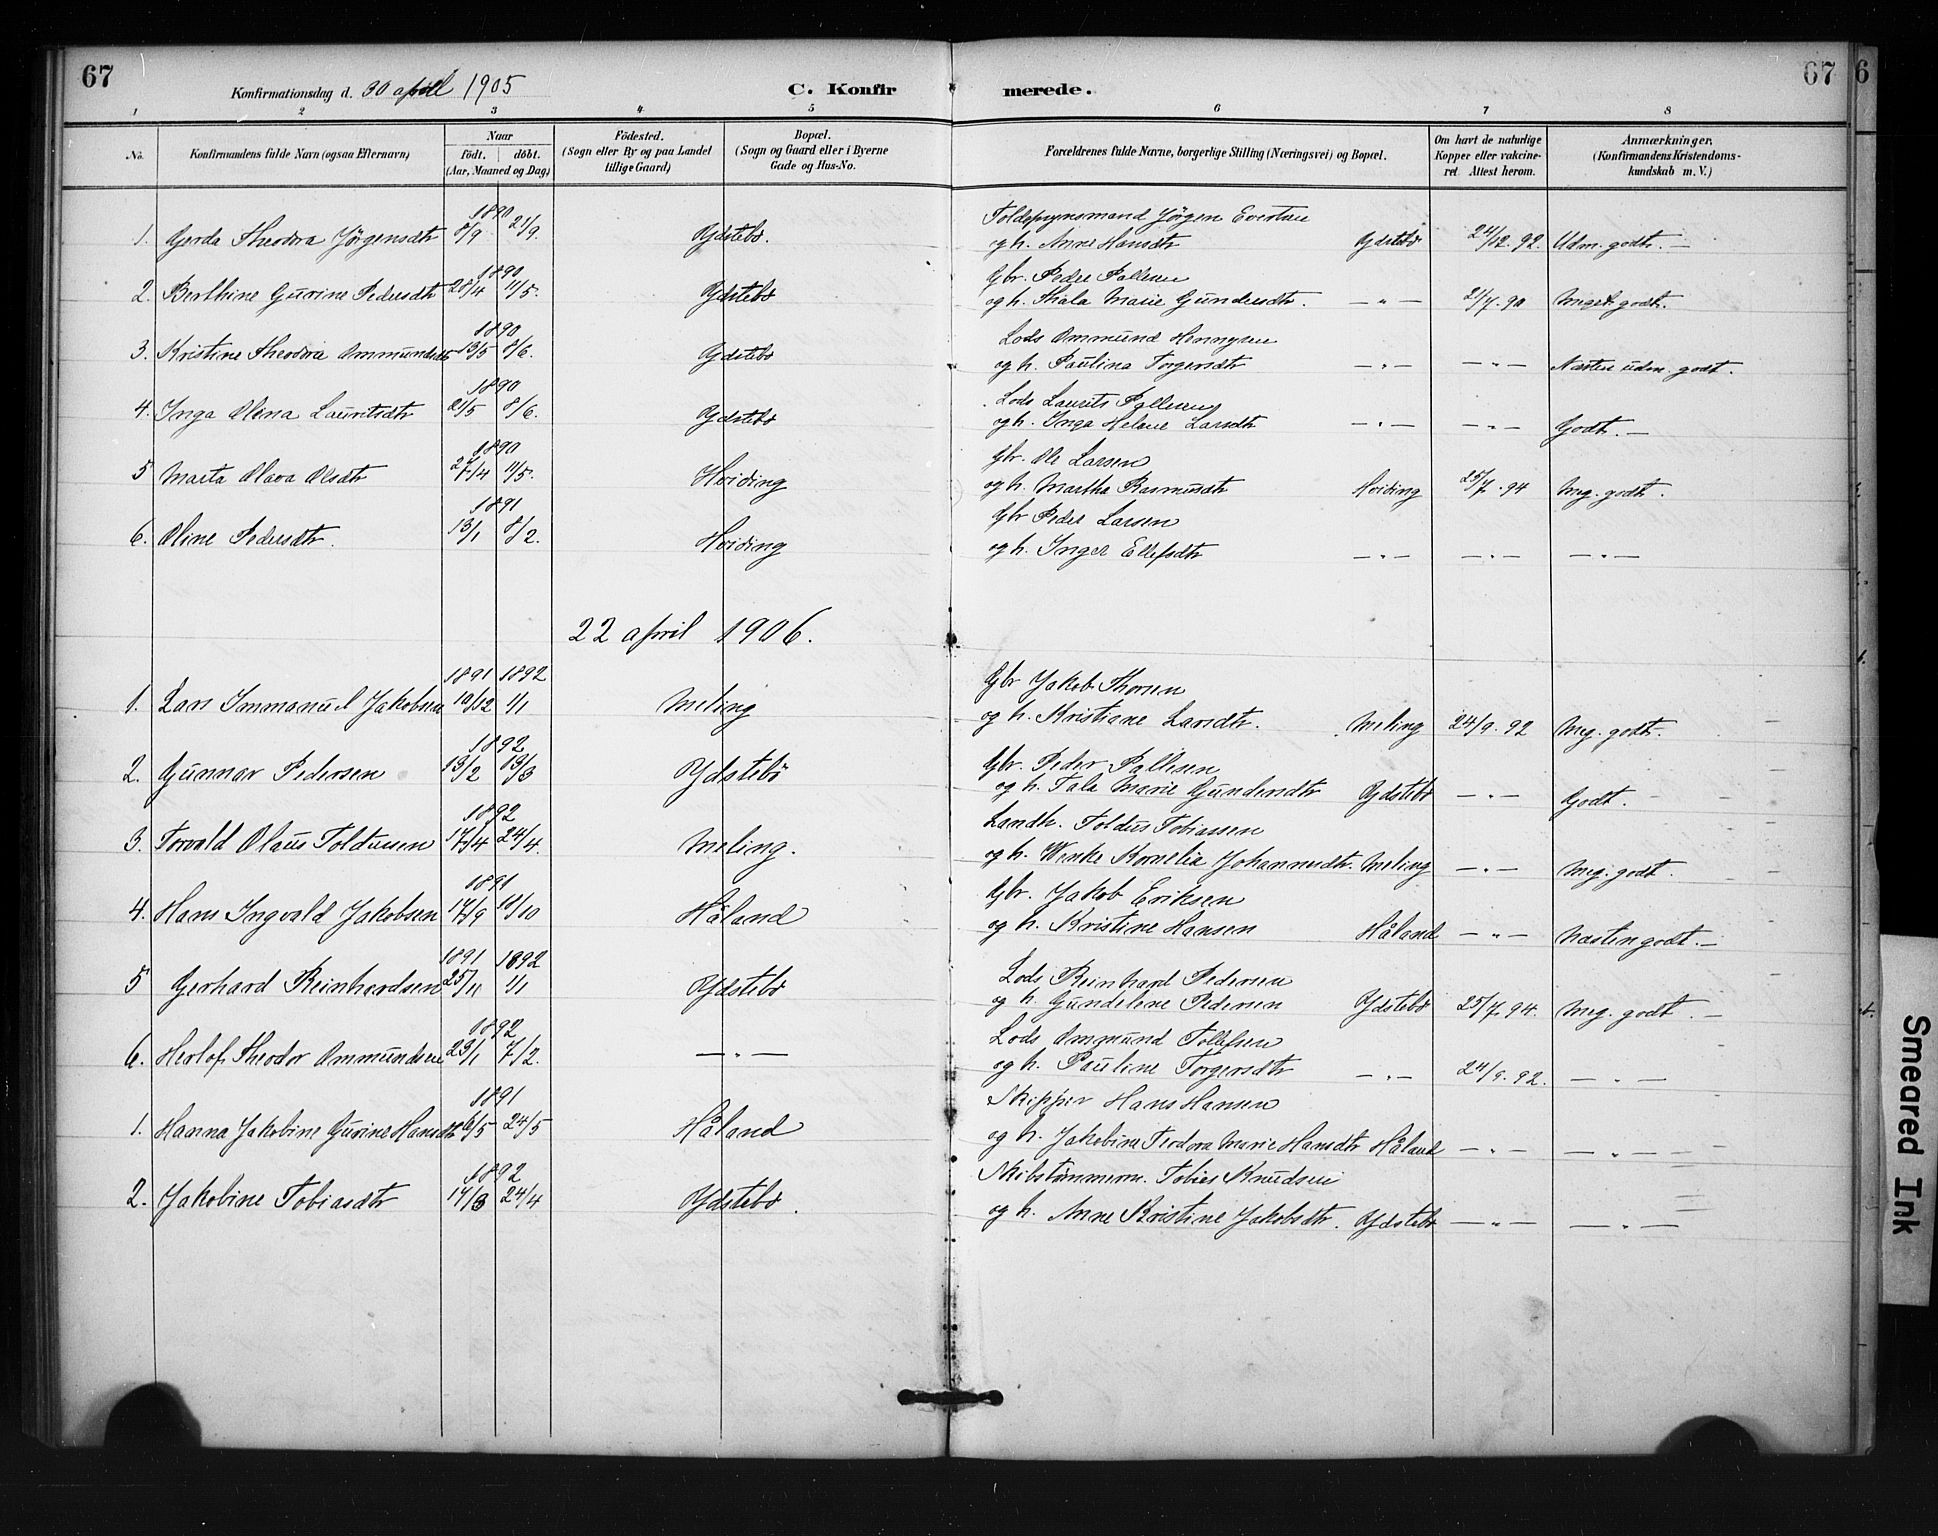 67
Konfirmationsdag d. 30 april 1905
C. Konfirmerede.
67
6
1 2 3 4 5 6 7 8
No.
Konfirmandens fulde Navn (ogsaa Efternavn)
Naar
födt. döbt.
(Aar, Maaned og Dag)
Födested.
(Sogn eller By og paa Landet
tillige Gaard)
Bopæl.
(Sogn og Gaard eller i Byerne
Gade og Hus-No.
Forældrenes fulde Navne, borgerlige Stilling (Næringsvei) og Bopæl.
Om havt de naturlige
Kopper eller vakcine-
ret Attest herom.
Anmærkninger,
(Konfirmandens Kristendoms-
kundskab m. V.)
1890 Jörgen
1. Gerda Theodora Jörgensdtr 8/9 21/9. Ydstebö. og h. Anne Hansdtr Ydstebö 24/12. 92. Udm. godt. —
1890 Gbr. Peder Pallesen
2. Berthine Gurine Pedersdtr 28/4 11/5. Ydstebö og h. Thala Marie Gundersdtr. — " — 21/7. 90 Meget godt.
1890 Lods Ommund
3. Kristine Theodora Ommundsdtr 13/5 8/6. Ydstebö og h. Paulina Torgersdtr — " — — " — Næsten udm. godt.
1890 Lods Laurits Pallesen
4. Inga Olena Lauritsdtr 21/5 8/6. Ydstebö og h. Inga Helene Larsdtr — " — — " — Godt. —
1890 Gbr. Ole Larsen
5 Marta Olava Olsdtr 27/4 11/5. Hviding og h. Martha Rasmusdtr Hviding 25/7. 94 Meg. godt.
1891 Gbr Peder Larsen
6. Oline Pedersdtr. 13/1 8/2. Hviding og h. Inger Ellefsdtr — " — — " — — " —
22 april 1906.
1891 1892 Gbr Jakob Thorsen
1. Lars Immanuel Jakobsen 10/12 1/1 Meling og h. Kristiane Larsdtr. Meling 24/9. 92 Meg. godt.
1892 Gbr. Peder Pallesen
2. Gunnar Pedersen 13/2 13/3 Ydstebö og h. Tala Marie Gundersdtr Ydstebö — " — Godt.
1892 Landh. Toldus Tobiassen
3. Torvald Olaus Toldusen 17/4 24/4. Meling. og h. Wenke Kornelia Johannesdtr. Meling — " — Meg. godt.
1891 Gbr. Jakob Eriksen
4. Hans Ingvald Jakobsen 17/9 10/10 Håland og h. Kristine Hansen Håland — " — Næsten godt. —
1891 1892 Lods Reinhard Pedersen
5 Gerhard Reinhardsen 25/11 1/1 Ydstebö og h. Gundelene Pedersen Ydstebö 25/7. 94. Meg. godt. —
1892 Lods Ommund Tollefsen
6. Herlof Theodor Ommundsen 23/1 7/2. — " — og h. Pauline Torgersdtr — " — 24/9. 92. — " —
1891 Skipper Hans Hansen
1. Hanna Jakobine Gurine Hansdtr 6/5 24/5 Håland og h. Jakobine Teodora Marie Hansdtr Håland — " — — " —
1892 Skibstömmerm. Tobias Knudsen
2. Jakobine Tobiasdtr 17/3 24/4 Ydstebö. og h. Anne Kristine Jakobsdtr. Ydstebö — " — — " —
Smeared Ink